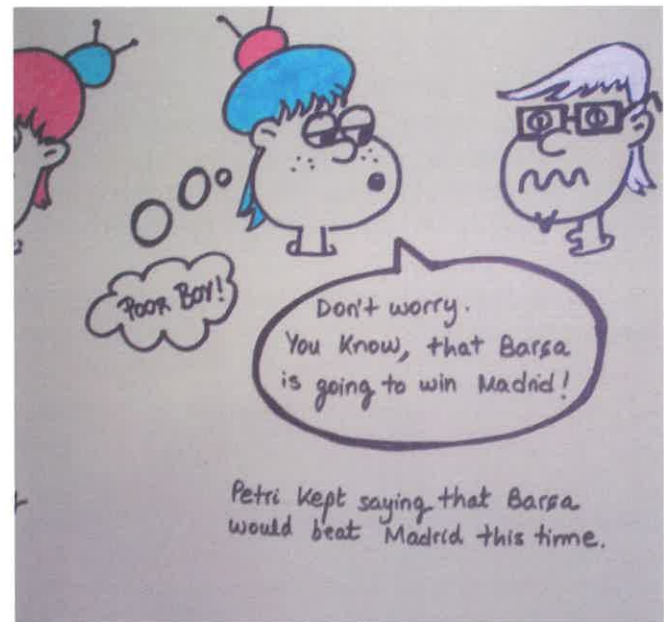 POOR BOY!
Don't worry.
You Know, that Barsa
is going to win Madrid!
Petri Kept saying that Barsa
would beat Madrid this time.